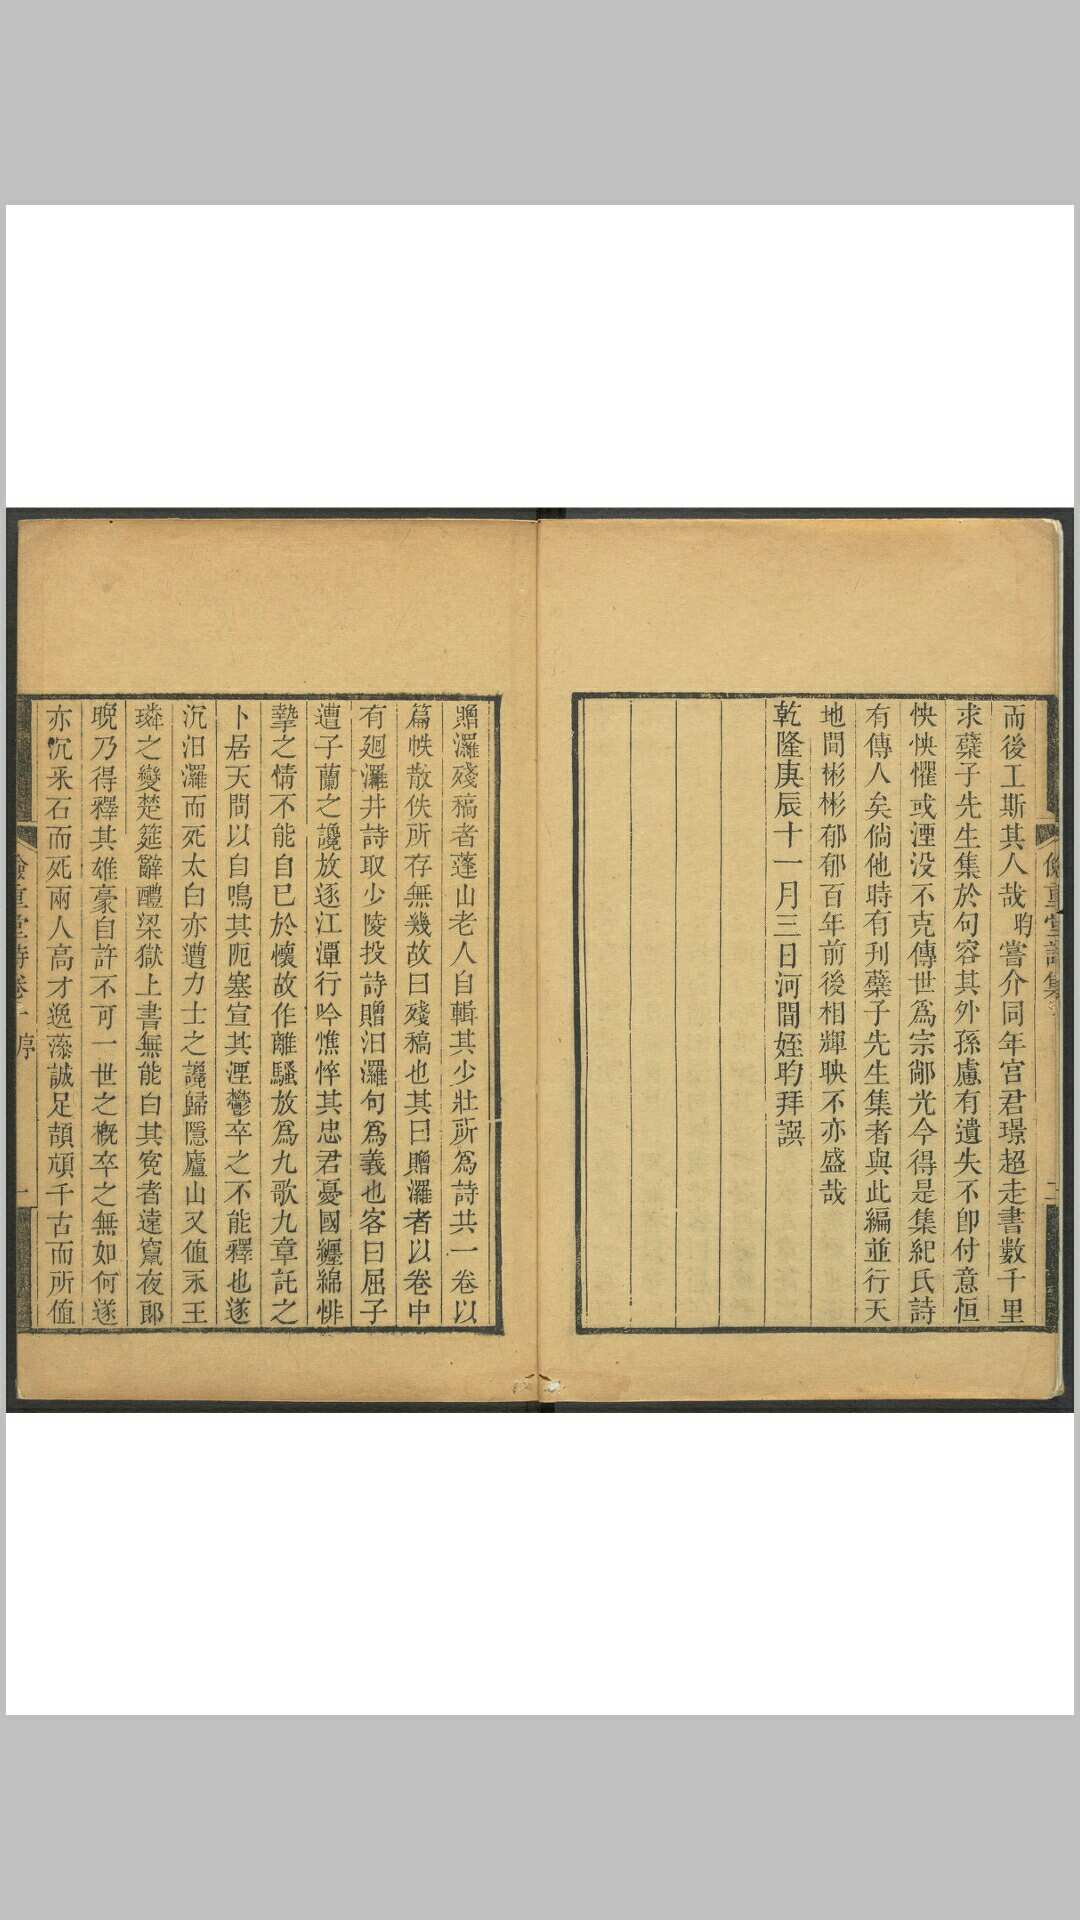 而後工斯其人哉昀嘗介同年宮君璟超走書數千里
求蘗子先生集於句容其外孫慮有遺失不卽付意恒
怏怏懼或湮没不克傳世爲宗鄗光今得是集紀氏詩
有傳人矣倘他時有刊蘗子先生集者與此編並行天
地間彬彬郁郁百年前後相輝映不亦盛哉
乾隆庚辰十一月三日河間姪昀拜譔
贈灑殘稿者蓬山老人自輯其少壯所爲詩共一卷以
篇帙散佚所存無幾故曰殘稿也其曰贈灑者以卷中
有廻灑井詩取少陵投詩贈汨灑句爲義也客曰屈子
遭子蘭之讒放逐江潭行吟憔悴其忠君憂國纏綿悱
摯之情不能自已於懷故作離騷放爲九歌九章託之
卜居天問以自鳴其阨塞宣其湮鬱卒之不能釋也遂
沉汨灑而死太白亦遭力士之讒歸隱廬山又値永王
璘之變楚筵辭醴梁獄上書無能白其寃者遠竄夜郎
晚乃得釋其雄豪自許不可一世之槪卒之無如何遂
亦沉采石而死兩人高才逸藻誠足頡頏千古而所值